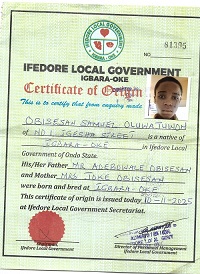 IFEDORE LOCAL GOVERNMENT
NO 81395
IFEDORE LOCAL GOVERNMENT
IGBARA-OKE
Certificate of Origin
This is to certify that from enquiry made
OBISESAN SAMUEL OLUWATUNDUN
of NO 1 IGBEHA STREET is a native of
IGBARA-OKE in Ifedore Local
Government of Ondo State.
His/Her Father MR ADEBOWALE OBISESAN
and Mother MRS JOKE OBISESAN
were born and bred at IGBARA-OKE
This certificate of origin is issued today 10-11-2025
at Ifedore Local Government Secretariat.
Ifedore Local Government
Director of Personnel Management
Ifedore Local Government